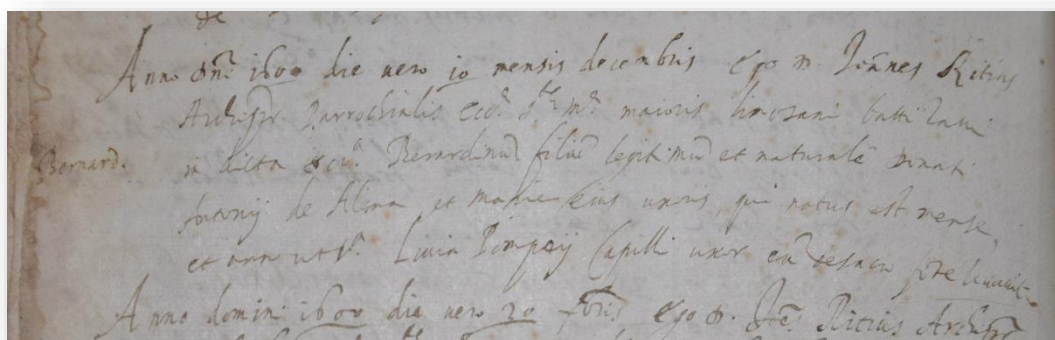 Anno dñi 1600 die vero 10 mensis decembris ego m Joãnes Ritius
Archipr parrochialis ecc.ᵃ S.ᵗᵉ m.ᵉ maioris limosani battizavi
Bernard. in dicta ecc.ᵃ Berardinũ filiũ legitimũ et naturalẽ Donati
Antonij de et marie eius uxoris qui natus est mense
et anno ut s.ᵃ Livia Pompeij Capilli uxor eũ de sacro fõte levavit
Anno domini 1600 die vero 20 Xbris ego Joẽs Ritius Archipr